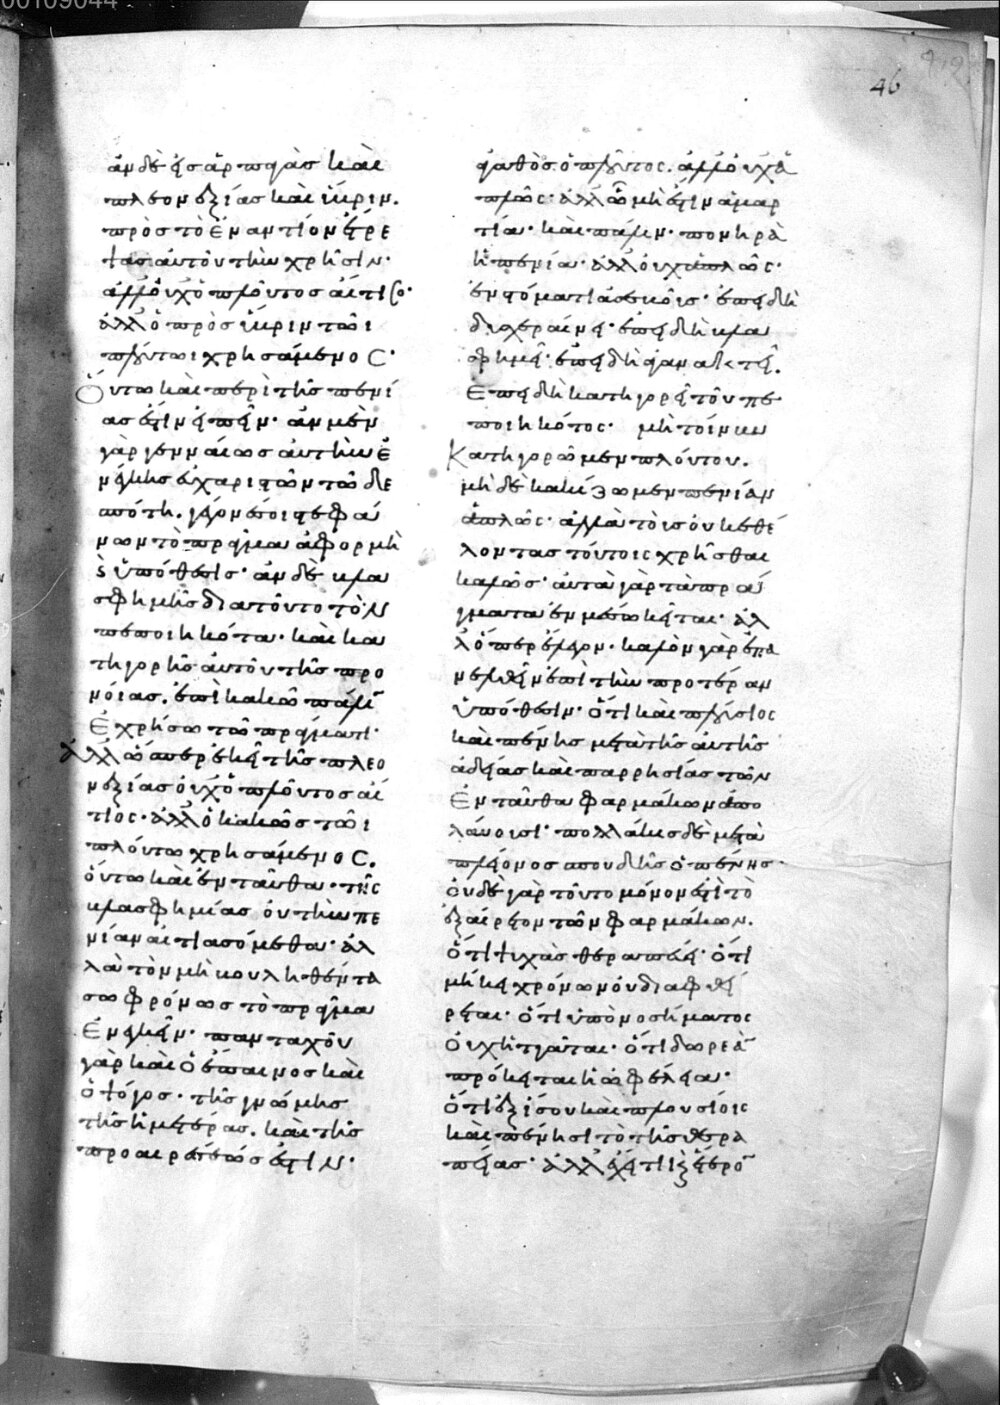 00109044
46
ἂν δὲ εἰς ἁρπαγὰς καὶ
πλεονεξίας καὶ ὕβριν.
πρὸς τὸ ἐναντίον ἔτρε
ψας αὐτοῦ τὴν χρῆσιν·
ἀλλ' οὐχ ὁ πλοῦτος αἴτιος·
ἀλλ' ὁ πρὸς ὕβριν τῶι
πλούτωι χρησάμενος·
Οὕτω καὶ περὶ τῆς πενί
ας ἔστιν εἰπεῖν· ἂν μὲν
γὰρ γενναίως αὐτὴν ἐ
νέγκης εὐχαριστῶν τῶ δε
σπότη. γέγονέ σοι στεφά
νων τὸ πρᾶγμα ἀφορμὴ
καὶ ὑπόθεσις· ἂν δὲ βλα
σφημῆς διὰ τοῦτο τὸν
πεποιηκότα· καὶ κα
τηγορῆς αὐτοῦ τῆς προ
νοίας. ἐπὶ κακῶ πάλιν
ἐχρήσω τῶ πράγματι·
ἀλλ' ὥσπερ ἐκεῖ τῆς πλεο
νεξίας οὐχ ὁ πλοῦτος αἴ
τιος· ἀλλ' ὁ κακῶς τῶι
πλούτω χρησάμενος.
οὕτω καὶ ἐνταῦθα· τῆς
βλασφημίας οὐ τὴν πε
νίαν αἰτιασόμεθα· ἀλ
λὰ τὸν μὴ βουληθέντα
σωφρόνως τὸ πρᾶγμα
ἐνεγκεῖν· πανταχοῦ
γὰρ καὶ ὁ ἔπαινος καὶ
ὁ ψόγος· τῆς γνώμης
τῆς ἡμετέρας. καὶ τῆς
προαιρέσεώς ἐστιν·
ἀγαθὸς ὁ πλοῦτος. ἀλλ' οὐχ ἁ
πλῶς· ἀλλ' ὧ μὴ ἔστιν ἁμαρ
τία· καὶ πάλιν· πονηρὰ
ἡ πενία· ἀλλ' οὐχ ἁπλῶς·
ἐν στόματι ἀσεβοῦς· ἐπειδὴ
δυσχεραίνει· ἐπειδὴ βλα
σφημεῖ· ἐπειδὴ ἀγανακτεῖ.
Ἐπειδὴ κατηγορεῖ τοῦ πε
ποιηκότος· μὴ τοίνυν
Κατηγορῶμεν πλούτου.
μηδὲ κακίζωμεν πενίαν
ἁπλῶς· ἀλλὰ τοὺς οὐκ ἐθέ
λοντας τούτοις χρῆσθαι
καλῶς· αὐτὰ γὰρ τὰ πρά
γματα ἐν μέσω κεῖται· ἀλ
λ' ὅπερ ἔλεγον· καλὸν γὰρ ἐπα
νελθεῖν ἐπὶ τὴν προτέραν
ὑπόθεσιν· ὅτι καὶ πλούσιος
καὶ πένης μετὰ τῆς αὐτῆς
ἀδείας καὶ παρρησίας τῶν
ἐνταῦθα φαρμάκων ἀπο
λαύουσι· πολλάκις δὲ μετὰ
πλείονος σπουδῆς ὁ πένης·
οὐδὲ γὰρ τοῦτο μόνον ἐστὶ τὸ
ἐξαίρετον τῶν φαρμάκων.
ὅτι ψυχὰς θεραπεύει· ὅτι
μήκει χρόνων οὐ διαφθεί
ρεται· ὅτι ὑπὸ νοσήματος
οὐχ ἡττᾶται· ὅτι δωρεὰν
πρόκειται ἡ ὠφέλεια·
ὅτι ἐξ ἴσου καὶ πλουσίοις
καὶ πένησι τὸ τῆς θερα
πείας· ἀλλ' ἔχει τι καὶ ἕτερον